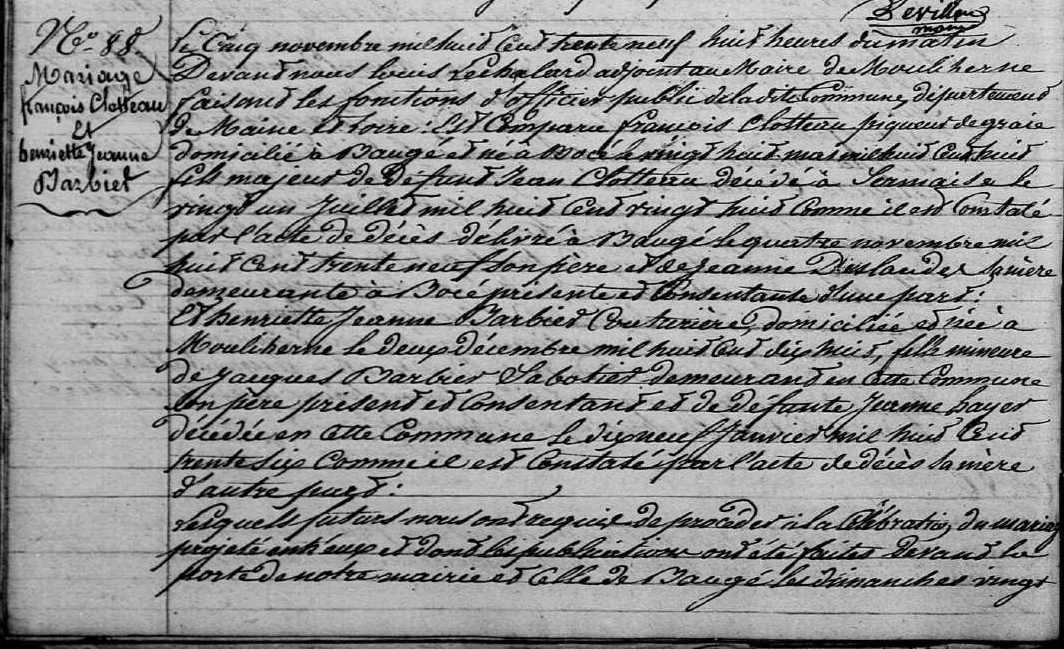 Devillou
maire
No. 88.
Mariage
françois Clotteau
Et
henriette Jeanne
Barbier
Le Cinq novembre mil huit Cent trente neuf huit heures du matin
Devant nous Louis Lechalard adjoint au Maire de Mouliherne
faisant les fonctions d'officier public de ladite Commune, département
de Maine et Loire: Est Comparu françois Clotteau piqueur de graie
domicilié à Baugé et né à Bocé le vingt huit mai mil huit Cent huit
fils majeur de défunt Jean Clotteau décédé à Sermaise le
vingt un Juillet mil huit Cent vingt huit Comme il est Constaté
par l'acte de décès délivré à Baugé le quatre novembre mil
huit Cent trente neuf son père et de Jeanne Deslandes sa mère
demeurante à Bocé présente et Consentante d'une part:
Et henriette Jeanne Barbier Couturière, domiciliée et née à
Mouliherne le deux décembre mil huit Cent dix huit, fille mineure
de Jacques Barbier Sabotier demeurant en Cette Commune
son père présent et Consentant et de défunte Jeanne hayer
décédée en Cette Commune le dix neuf Janvier mil huit Cent
trente six Comme il est Constaté par l'acte de décès sa mère
d'autre part:
Lesquels futurs nous ont requis de procéder à la Célébration du mariage
projeté entr'eux et dont les publications ont été faites Devant la
porte de notre mairie et Celle de Baugé les dimanches vingt